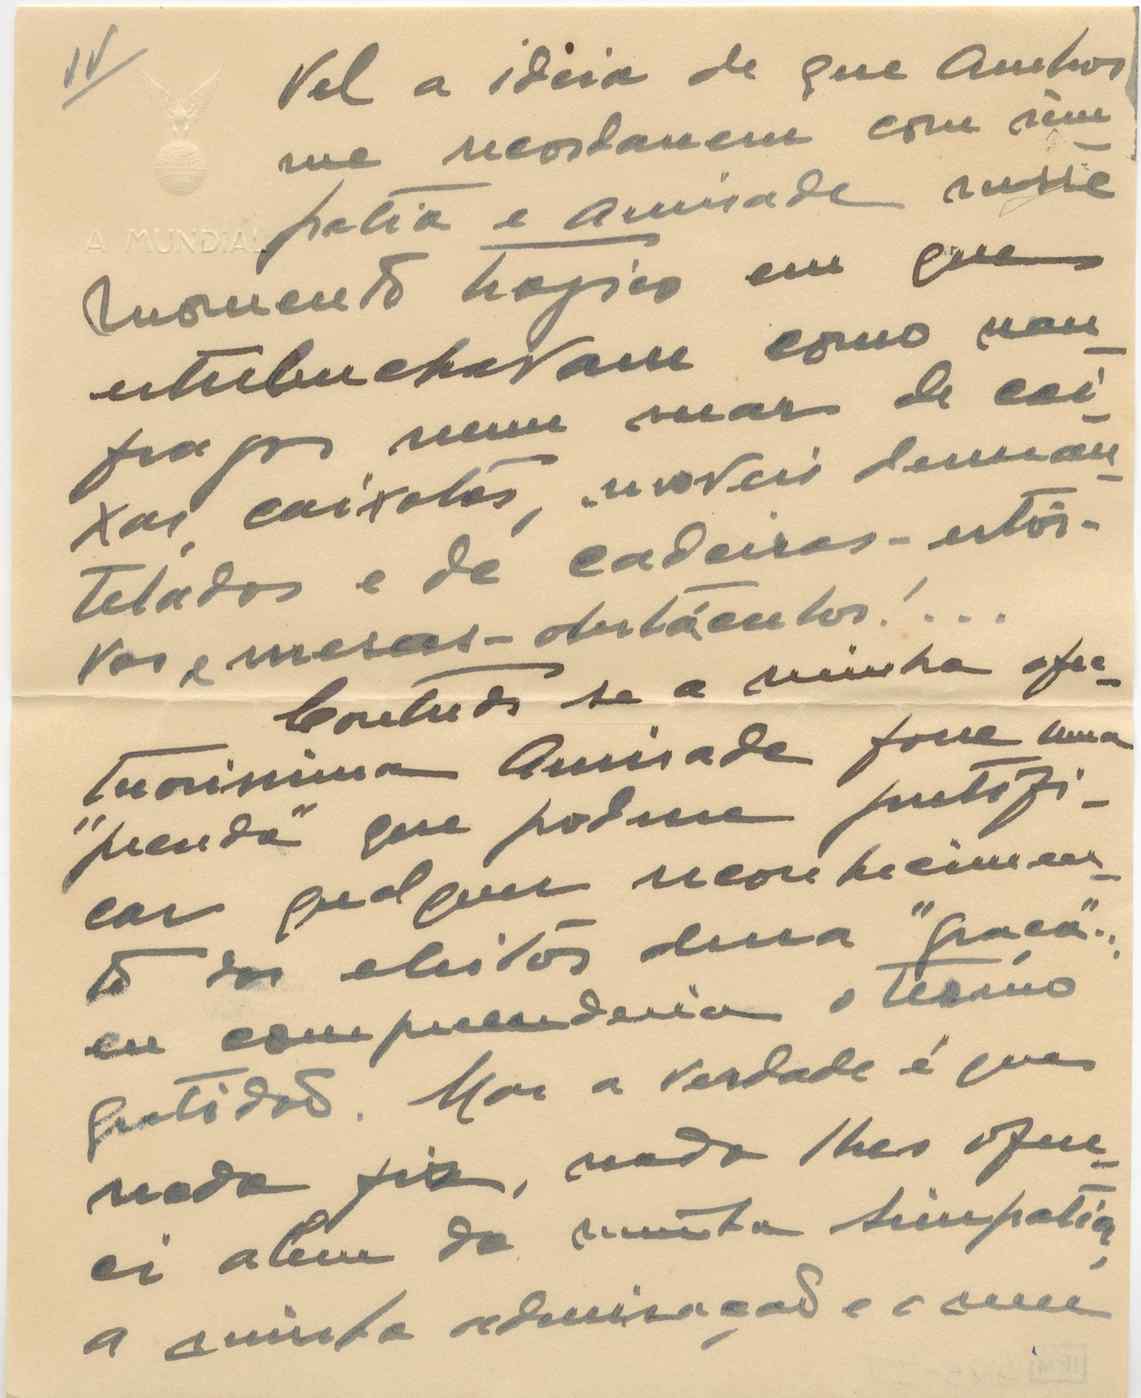 IV
A MUNDIAL
vel a ideia de que Ambos
me recordarem com sim
patia e Amisade nesse
momento tragico em que
estrebuchavam como nau-
fragos num mar de cai-
xas, caixotes, moveis desman-
telados e de cadeiras-estor-
vos, e mesas-obstáculos!...
Contudo se a minha afe-
tuosissima Amisade fosse uma
"prenda" que podesse justifi-
car qualquer reconhecimen-
to dos eleitos dessa "graça"..
eu compreenderia o termo
gratidão. Mas a verdade é que
nada fiz, nada lhes ofere-
ci alem da minha simpatia,
a minha admiração e o meu